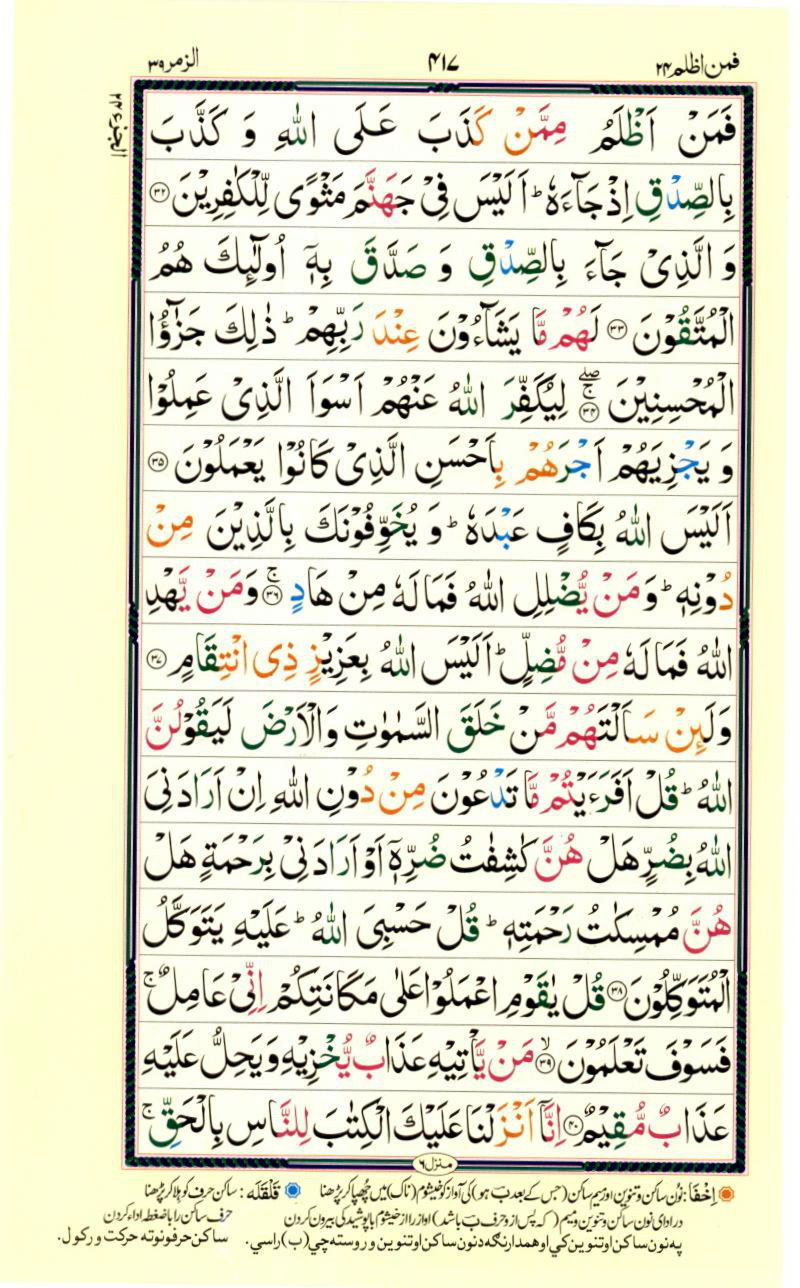 فمن اظلم ۲۴
۴۱۷
الزمر ۳۹
الجزء ۲۴
فَمَنْ اَظْلَمُ مِمَّنْ كَذَبَ عَلَى اللّٰهِ وَ كَذَّبَ
بِالصِّدْقِ اِذْ جَآءَهٗ ؕ اَلَيْسَ فِیْ جَهَنَّمَ مَثْوًی لِّلْكٰفِرِيْنَ ﴿۳۲﴾
وَ الَّذِیْ جَآءَ بِالصِّدْقِ وَ صَدَّقَ بِهٖۤ اُولٰٓئِكَ هُمُ
الْمُتَّقُوْنَ ﴿۳۳﴾ لَهُمْ مَّا يَشَآءُوْنَ عِنْدَ رَبِّهِمْ ؕ ذٰلِكَ جَزٰٓؤُا
الْمُحْسِنِيْنَ ﴿۳۴﴾ۚۖ لِيُكَفِّرَ اللّٰهُ عَنْهُمْ اَسْوَاَ الَّذِیْ عَمِلُوْا
وَ يَجْزِيَهُمْ اَجْرَهُمْ بِاَحْسَنِ الَّذِیْ كَانُوْا يَعْمَلُوْنَ ﴿۳۵﴾
اَلَيْسَ اللّٰهُ بِكَافٍ عَبْدَهٗ ؕ وَ يُخَوِّفُوْنَكَ بِالَّذِيْنَ مِنْ
دُوْنِهٖ ؕ وَمَنْ يُّضْلِلِ اللّٰهُ فَمَا لَهٗ مِنْ هَادٍ ﴿۳۶﴾ۚ وَمَنْ يَّهْدِ
اللّٰهُ فَمَا لَهٗ مِنْ مُّضِلٍّ ؕ اَلَيْسَ اللّٰهُ بِعَزِيْزٍ ذِی انْتِقَامٍ ﴿۳۷﴾
وَلَئِنْ سَاَلْتَهُمْ مَّنْ خَلَقَ السَّمٰوٰتِ وَالْاَرْضَ لَيَقُوْلُنَّ
اللّٰهُ ؕ قُلْ اَفَرَءَيْتُمْ مَّا تَدْعُوْنَ مِنْ دُوْنِ اللّٰهِ اِنْ اَرَادَنِیَ
اللّٰهُ بِضُرٍّ هَلْ هُنَّ كٰشِفٰتُ ضُرِّهٖۤ اَوْ اَرَادَنِیْ بِرَحْمَةٍ هَلْ
هُنَّ مُمْسِكٰتُ رَحْمَتِهٖ ؕ قُلْ حَسْبِیَ اللّٰهُ ؕ عَلَيْهِ يَتَوَكَّلُ
الْمُتَوَكِّلُوْنَ ﴿۳۸﴾ قُلْ يٰقَوْمِ اعْمَلُوْا عَلٰی مَكَانَتِكُمْ اِنِّیْ عَامِلٌ ۚ
فَسَوْفَ تَعْلَمُوْنَ ﴿۳۹﴾ۙ مَنْ يَّاْتِيْهِ عَذَابٌ يُّخْزِيْهِ وَيَحِلُّ عَلَيْهِ
عَذَابٌ مُّقِيْمٌ ﴿۴۰﴾ اِنَّاۤ اَنْزَلْنَا عَلَيْكَ الْكِتٰبَ لِلنَّاسِ بِالْحَقِّ ۚ
منزل ۶
اِخْفَا: نُون ساکن و تنوین اور میم ساکن (جس کے بعد ب ہو) کی آواز کو خیشوم (ناک) میں چُھپا کر پڑھنا
قَلْقَلَه: ساکن حرف کو ہلا کر پڑھنا
در ادای نون ساکن و تنوین و میم (که پس از و حرف ب باشد) اواز را از خیشوم با پوشیدگی بیرون کردن
حرف ساکن را با ضغطه اداء کردن
په نون ساکن او تنوین کې او همدارنګه د نون ساکن او تنوین وروسته چې (ب) راسي.
ساکن حرفونو ته حرکت ورکول.